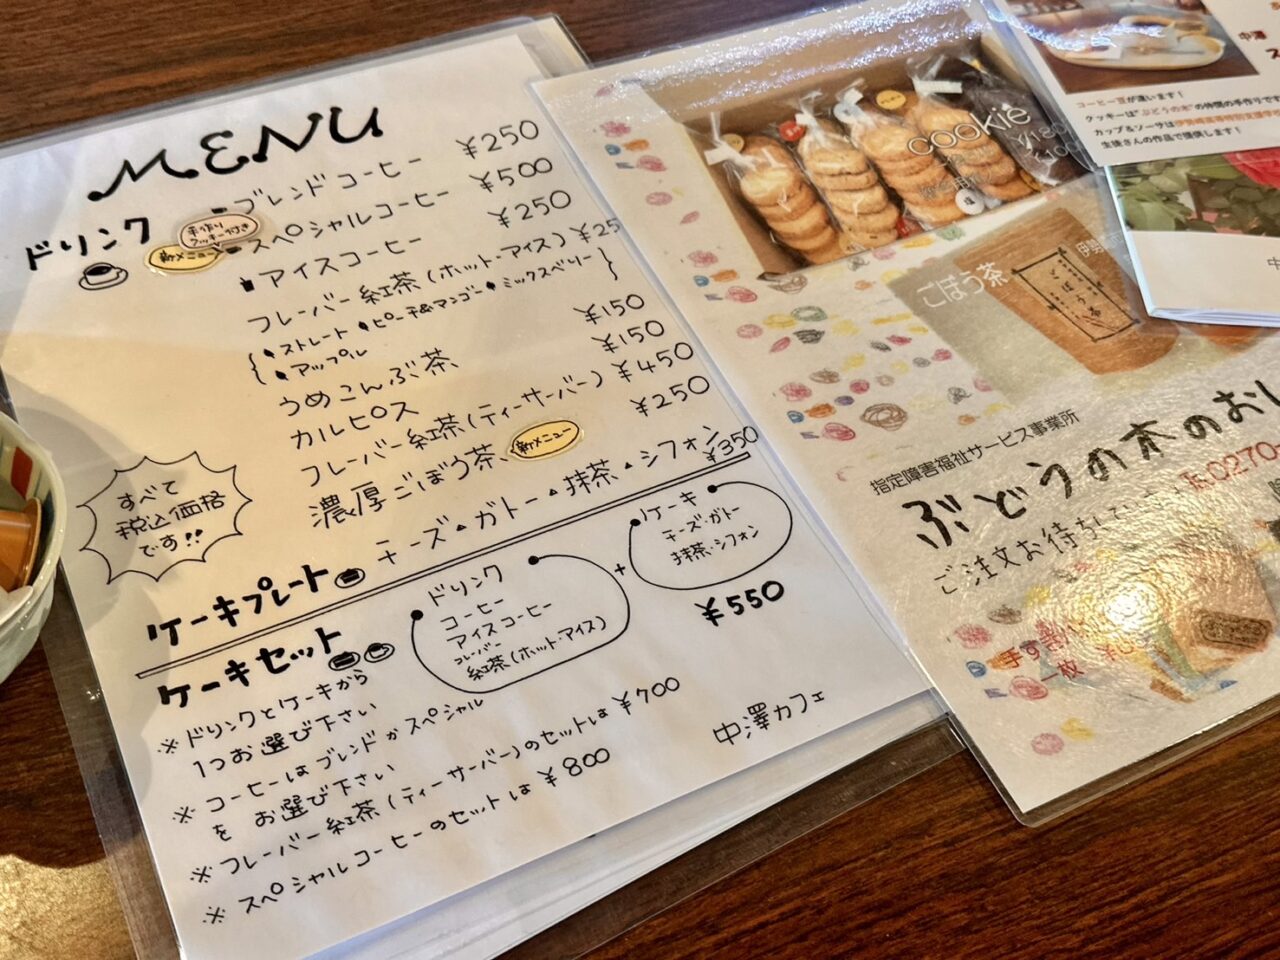 MENU
ドリンク
ブレンドコーヒー ¥250
手作りクッキー付き
新メニュー
スペシャルコーヒー ¥500
アイスコーヒー ¥250
フレーバー紅茶(ホット・アイス) ¥25
ストレート ピーチ&マンゴー ミックスベリー
アップル
うめこんぶ茶 ¥150
カルピス ¥150
フレーバー紅茶(ティーサーバー) ¥450
濃厚ごぼう茶 新メニュー ¥250
すべて
税込価格
です!!
ケーキプレート チーズ・ガトー・抹茶・シフォン ¥350
ケーキセット
ドリンク
コーヒー
アイスコーヒー
フレーバー
紅茶(ホット・アイス)
+
ケーキ
チーズ・ガトー
抹茶・シフォン
¥550
※ ドリンクとケーキから
1つお選び下さい
※ コーヒーはブレンドかスペシャル
を お選び下さい
※ フレーバー紅茶(ティーサーバー)のセットは¥700
※ スペシャルコーヒーのセットは¥800
中澤カフェ
cookie
¥180
ごぼう茶
ごぼう茶
指定障害福祉サービス事業所
ぶどうの木のおし
℡0270-
ご注文お待ちして
手す
一枚
コーヒー豆が違います!
クッキーは"ぶどうの木"の仲間の手作りです
カップ&ソーサは伊勢崎高等特別支援学校
生徒さんの作品で提供します!
中澤
ス